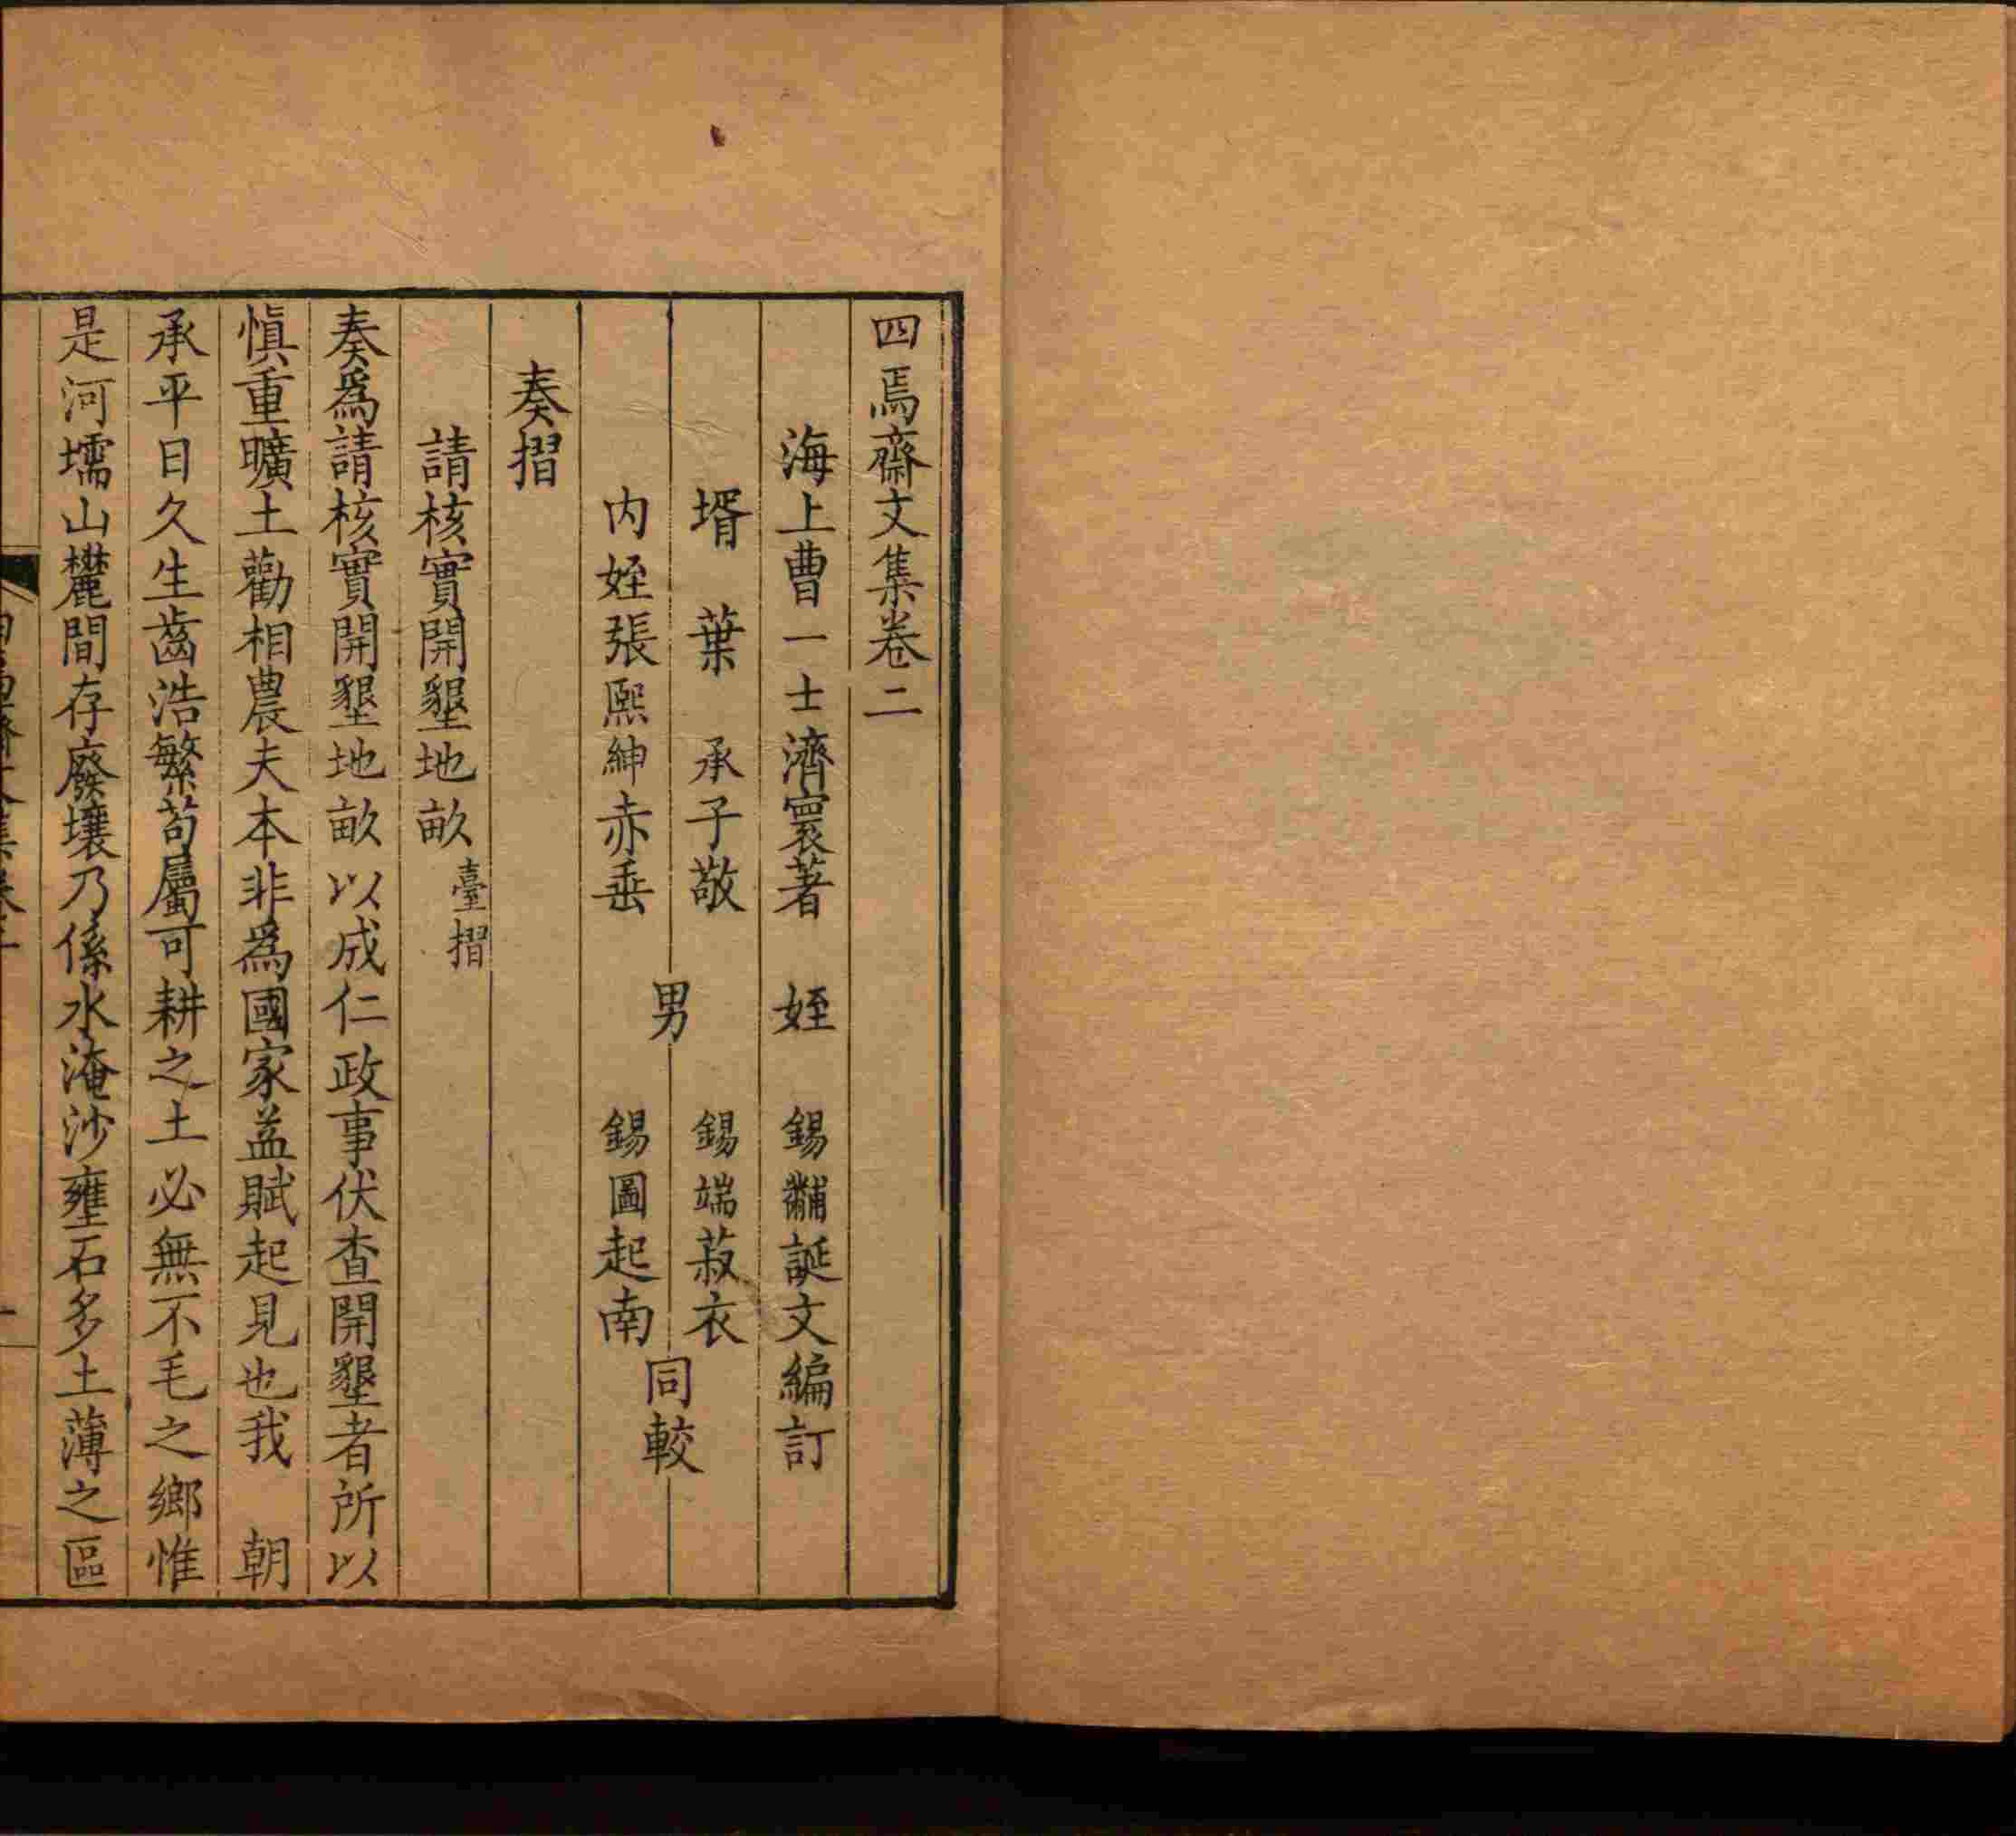 四焉齋文集卷二
海上曹一士濟寰著　姪　錫黼誕文編訂
壻　葉　承子敬　錫端菽衣
男　同較
内姪張熙紳赤垂　錫圖起南
奏摺
請核實開墾地畝臺摺
奏爲請核實開墾地畝以成仁政事伏查開墾者所以
愼重曠土勸相農夫本非爲國家益賦起見也我　朝
承平日久生齒浩繁苟屬可耕之土必無不毛之鄉惟
是河壖山麓間存廢壤乃係水淹沙壅石多土薄之區